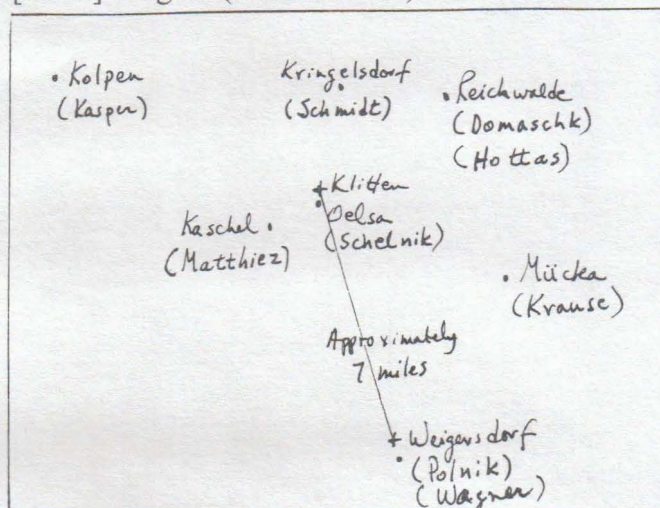 Kolpen
(Kasper)
Kringelsdorf
(Schmidt)
Reichwalde
(Domaschk)
(Hottas)
Klitten
Oelsa
(Schelnik)
Kaschel
(Matthiez)
Mücka
(Krause)
Approximately
7 miles
Weigersdorf
(Polnik)
(Wagner)